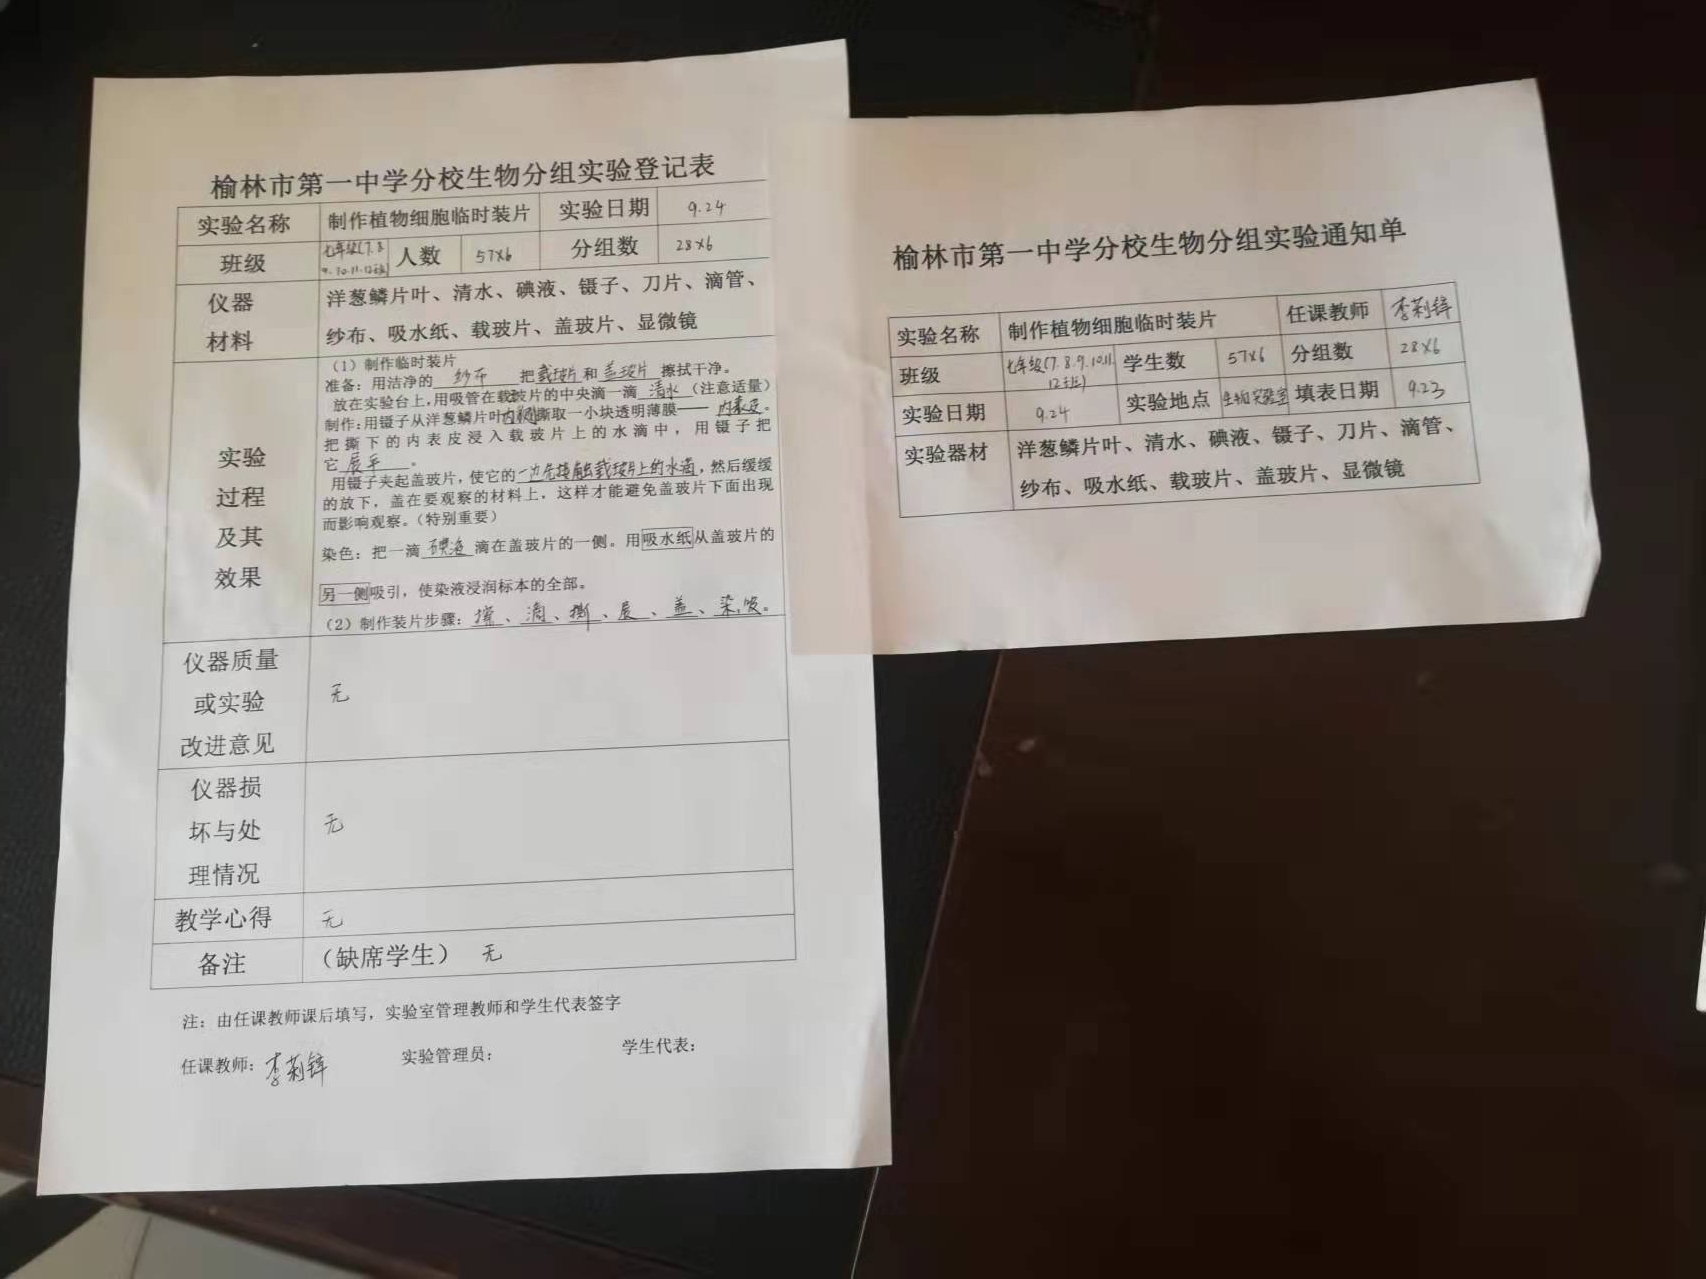 榆林市第一中学分校生物分组实验登记表
实验名称 制作植物细胞临时装片 实验日期 9.24
班级 七年级(7.8 9.10.11.12班) 人数 57×6 分组数 28×6
仪器 洋葱鳞片叶、清水、碘液、镊子、刀片、滴管、
材料 纱布、吸水纸、载玻片、盖玻片、显微镜
实验
过程
及其
效果
（1）制作临时装片
准备：用洁净的 纱布 把载玻片和盖玻片 擦拭干净。
放在实验台上,用吸管在载玻片的中央滴一滴 清水（注意适量）
制作:用镊子从洋葱鳞片叶内侧撕取一小块透明薄膜—— 内表皮。
把撕下的内表皮浸入载玻片上的水滴中，用镊子把
它 展平 。
用镊子夹起盖玻片，使它的一边先接触载玻片上的水滴，然后缓缓
的放下，盖在要观察的材料上，这样才能避免盖玻片下面出现
而影响观察。（特别重要）
染色：把一滴 碘液 滴在盖玻片的一侧。用吸水纸从盖玻片的
另一侧吸引，使染液浸润标本的全部。
（2）制作装片步骤：擦、滴、撕、展、盖、染,吸。
仪器质量
或实验 无
改进意见
仪器损
坏与处 无
理情况
教学心得 无
备注 （缺席学生） 无
注：由任课教师课后填写，实验室管理教师和学生代表签字
任课教师：李莉锌 实验管理员： 学生代表：
榆林市第一中学分校生物分组实验通知单
实验名称 制作植物细胞临时装片 任课教师 李莉锌
班级 七年级(7.8.9.10.11. 12班) 学生数 57×6 分组数 28×6
实验日期 9.24 实验地点 生物实验室 填表日期 9.23
实验器材 洋葱鳞片叶、清水、碘液、镊子、刀片、滴管、
纱布、吸水纸、载玻片、盖玻片、显微镜